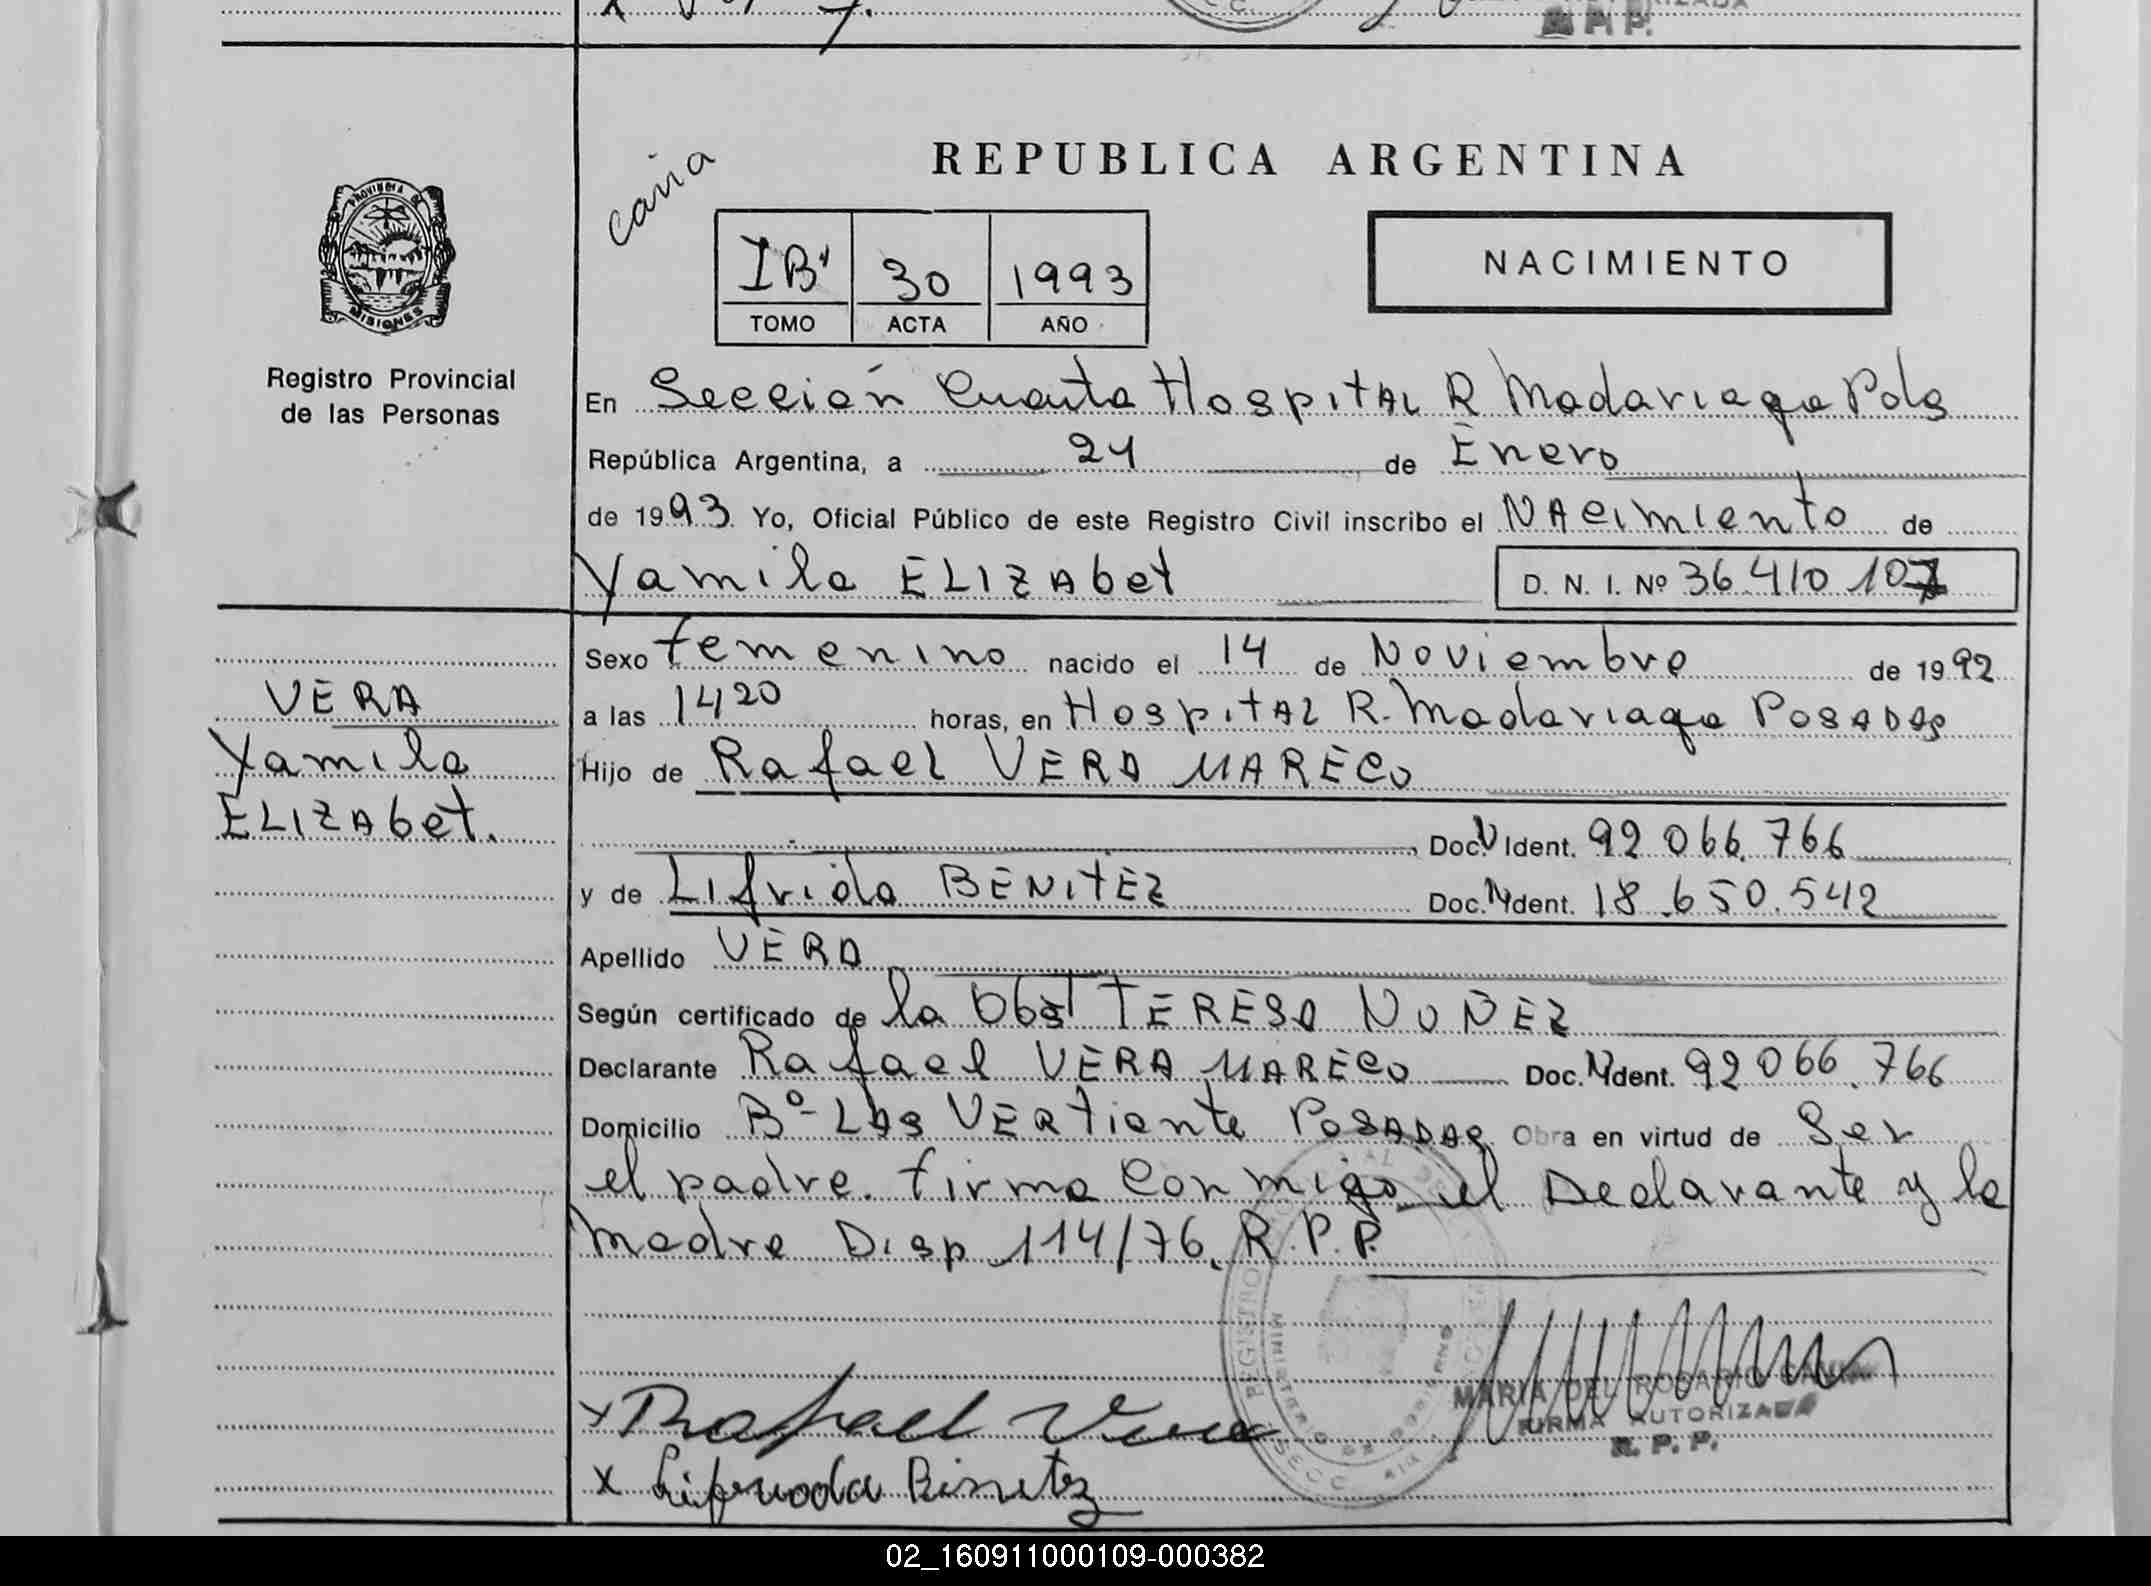 REPUBLICA ARGENTINA
caria
PROVINCIA DE
MISIONES
Registro Provincial
de las Personas
IB' 30 1993
TOMO ACTA AÑO
NACIMIENTO
En Sección Cuarta Hospital R Madariaga Pdas
República Argentina, a 21 de Enero
de 1993. Yo, Oficial Público de este Registro Civil inscribo el NAcimiento de
Yamila ELIZAbet D. N. I. Nº 36.410.107
Sexo femenino nacido el 14 de Noviembre de 1992
a las 1420 horas, en HospitAL R. Madariaga POSADAS
Hijo de Rafael VERA MARECO
Doc. N Ident. 92 066.766
y de Lifrida BENITEZ Doc. N Ident. 18.650.542
Apellido VERA
Según certificado de la Obst TERESA NUÑEZ
Declarante Rafael VERA MARECO Doc. N Ident. 92 066.766
Domicilio Bº- LAS VERtiente POSADAS Obra en virtud de Ser
el padre. firma conmigo el Declarante y la
madre Disp 114/76. R.P.P.
VERA
Yamila
ELIZAbet.
MARIA DEL ROSARIO
FIRMA AUTORIZADA
R. P. P.
x Rafael Vera
x
02_160911000109-000382